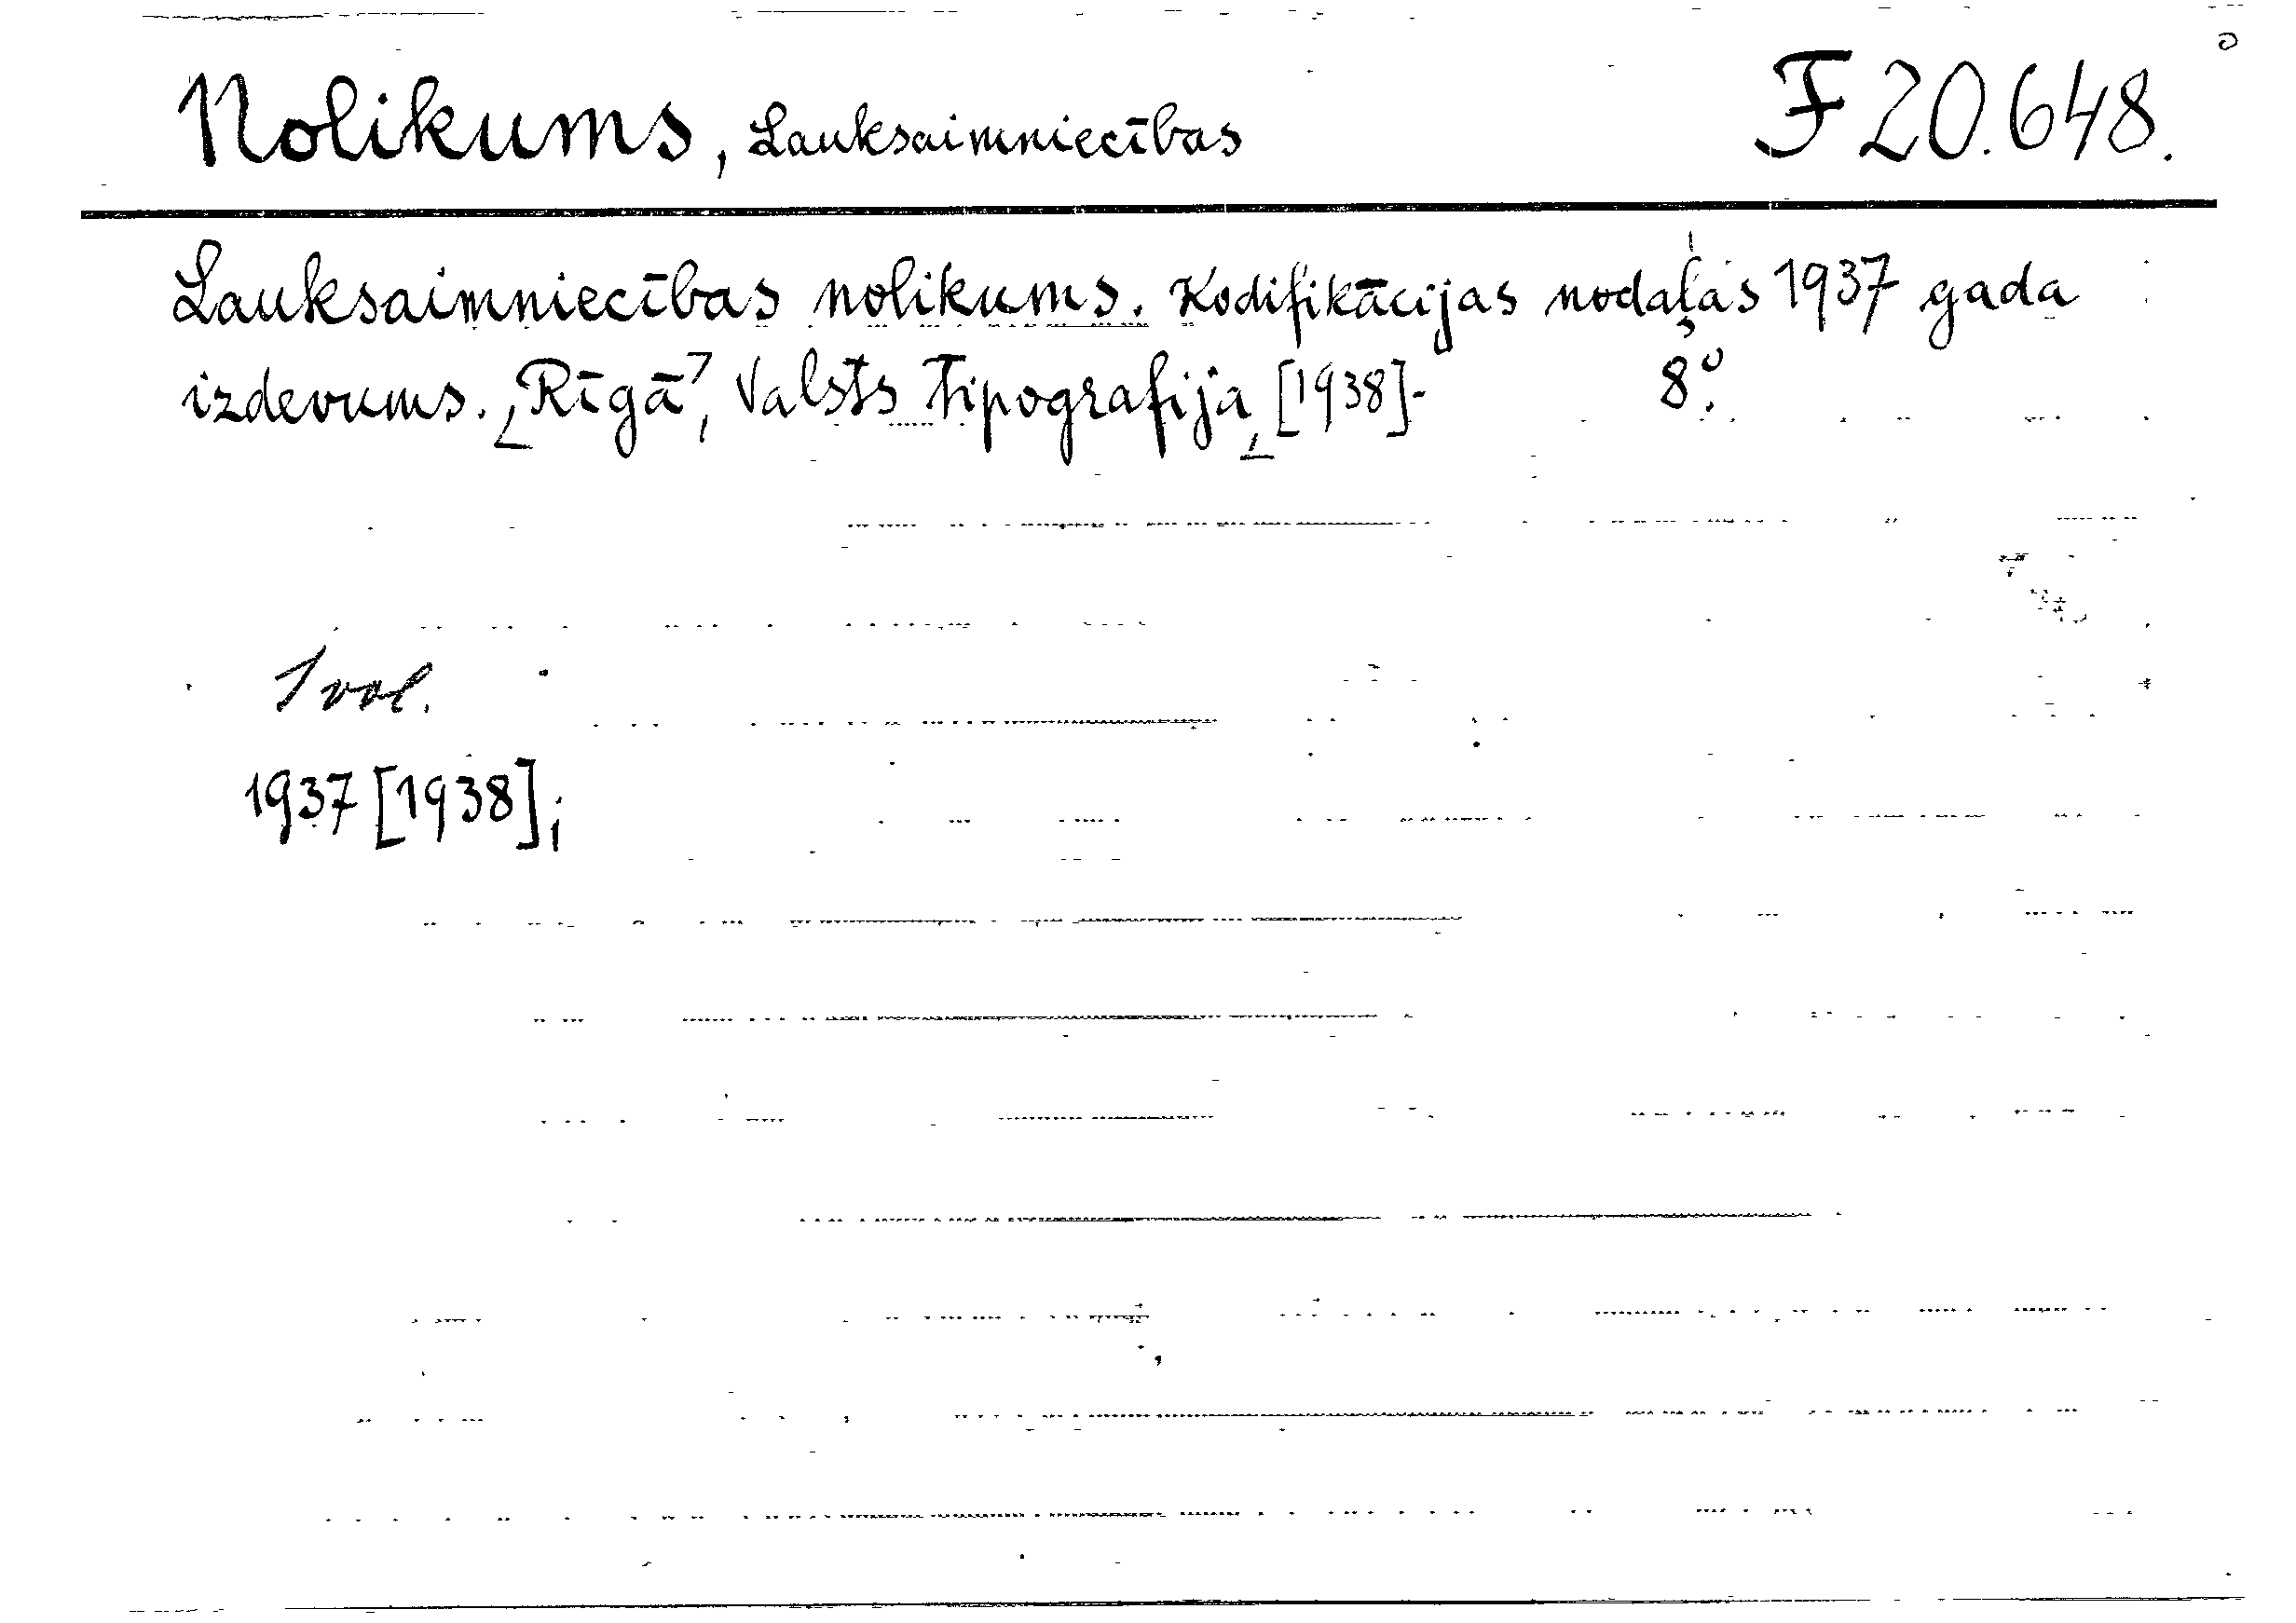 Nolikums, Lauksaimniecības F 20.648.
Lauksaimniecības nolikums. Kodifikācijas nodaļas 1937 gada
izdevums. ⌞Rīgā⌝, Valsts Tipografija, [1938]- 8°.
1 vol.
1937 [1938];